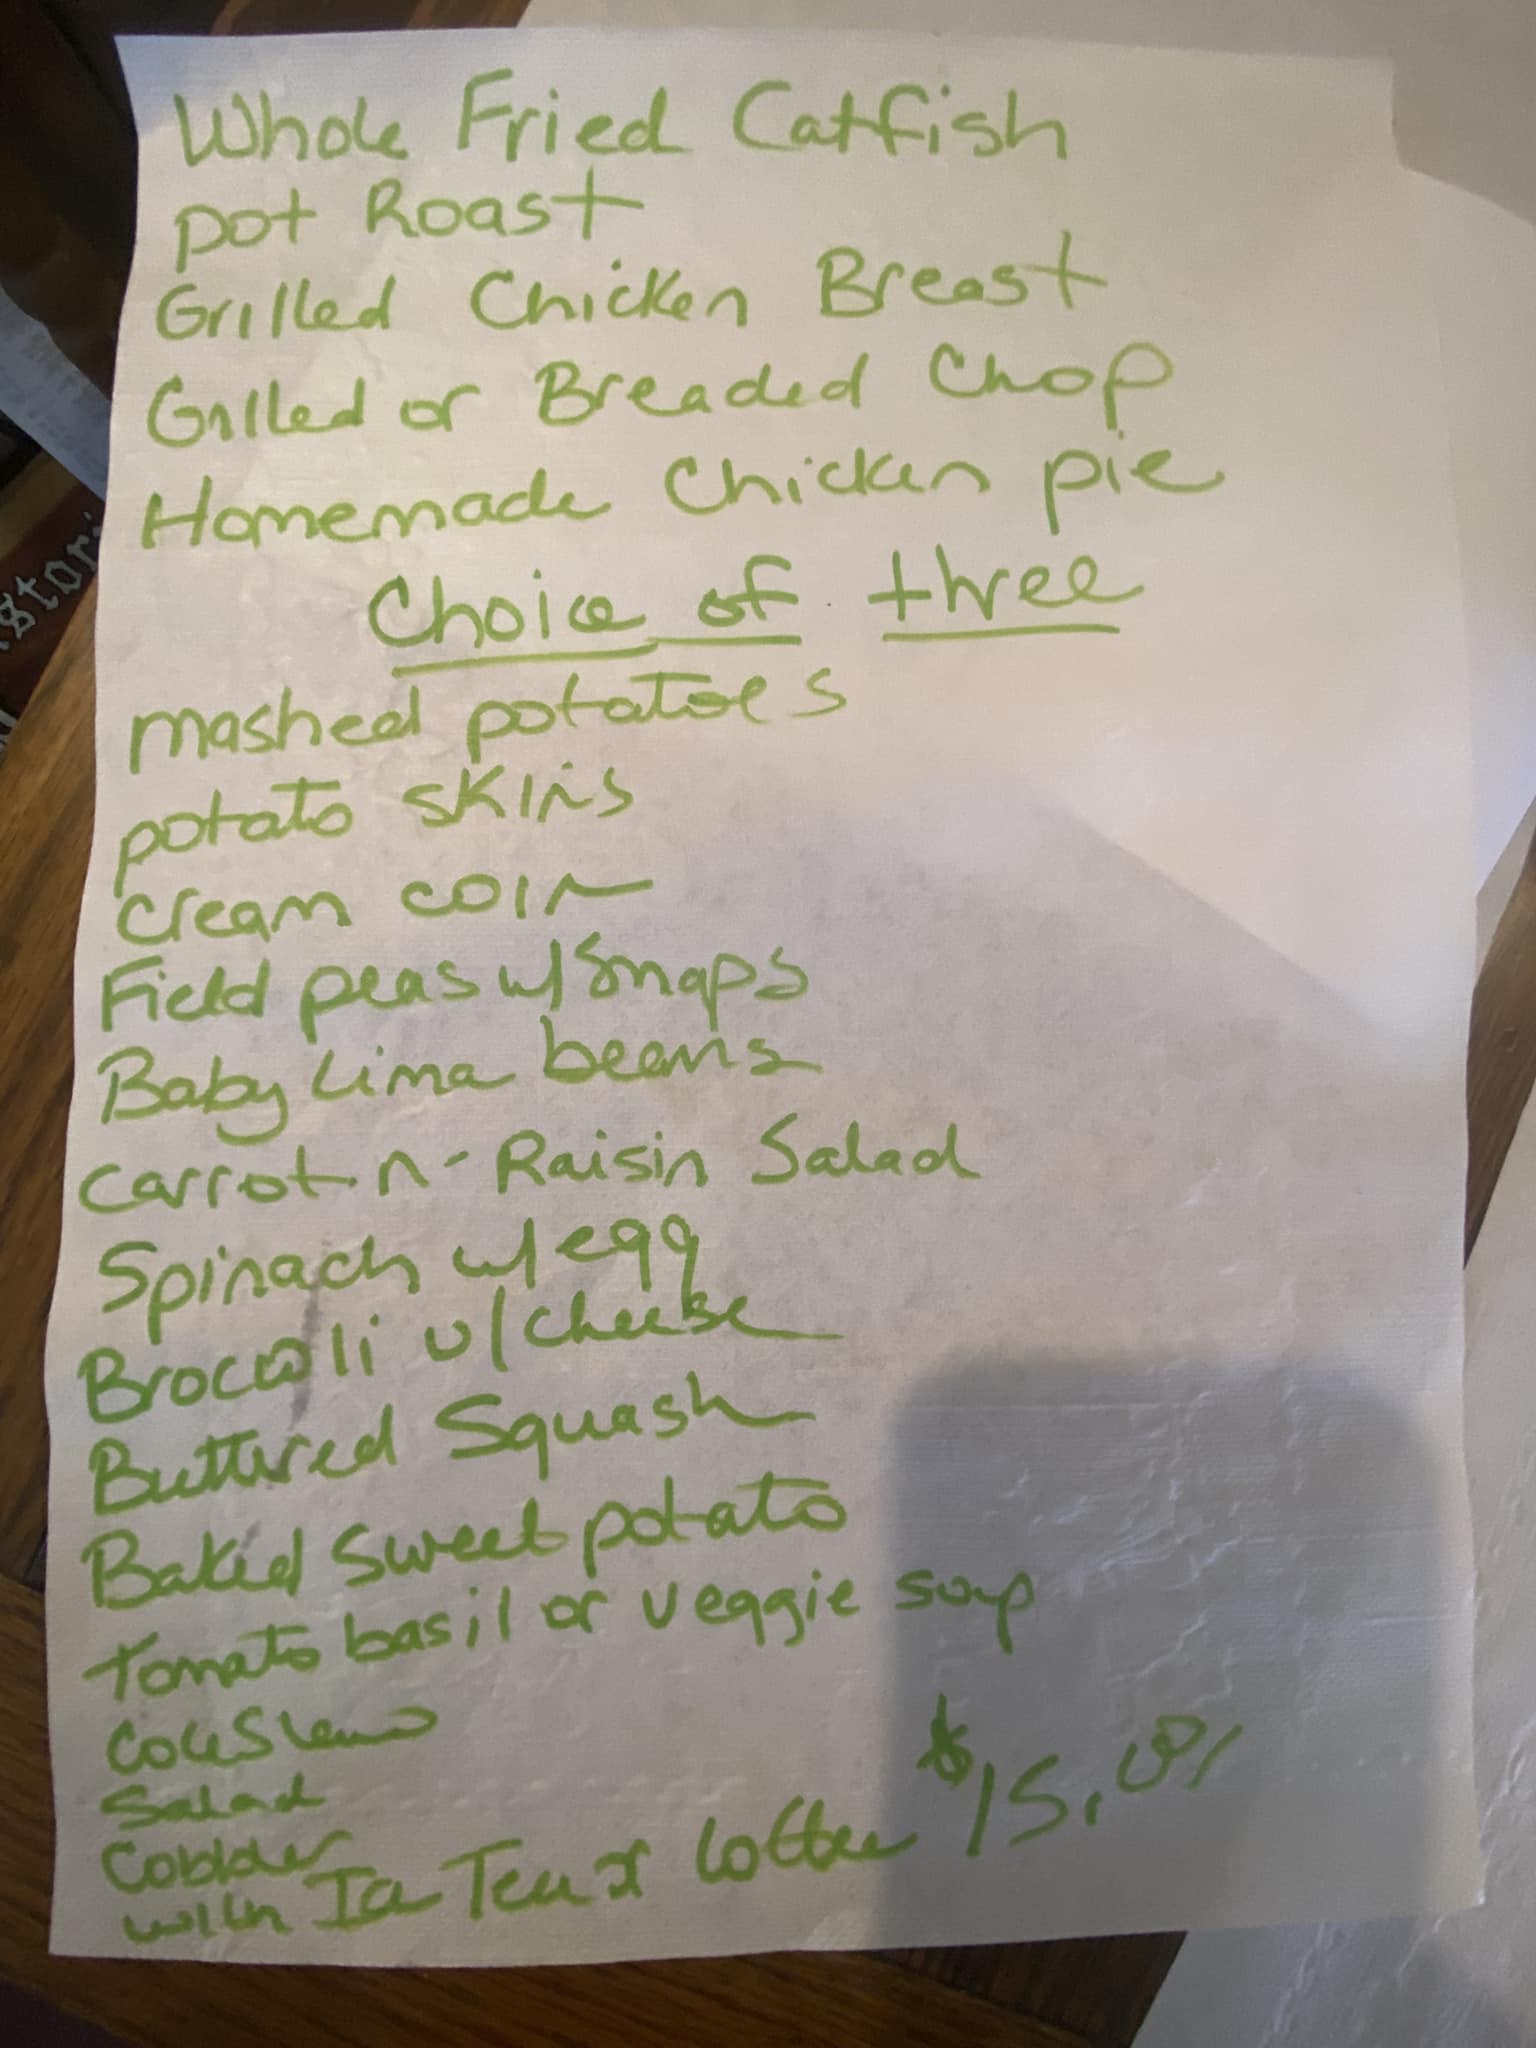 Whole Fried Catfish
pot Roast
Grilled Chicken Breast
Grilled or Breaded Chop
Homemade Chicken pie
Choice of three
mashed potatoes
potato skins
cream corn
Field peas w/ Snaps
Baby Lima beans
Carrot-n-Raisin Salad
Spinach w/ egg
Broccoli w/ cheese
Buttered Squash
Baked Sweet potato
Tomato basil or veggie soup
Coleslaw
Salad
Cobbler
with Ice Tea or Coffee $15.